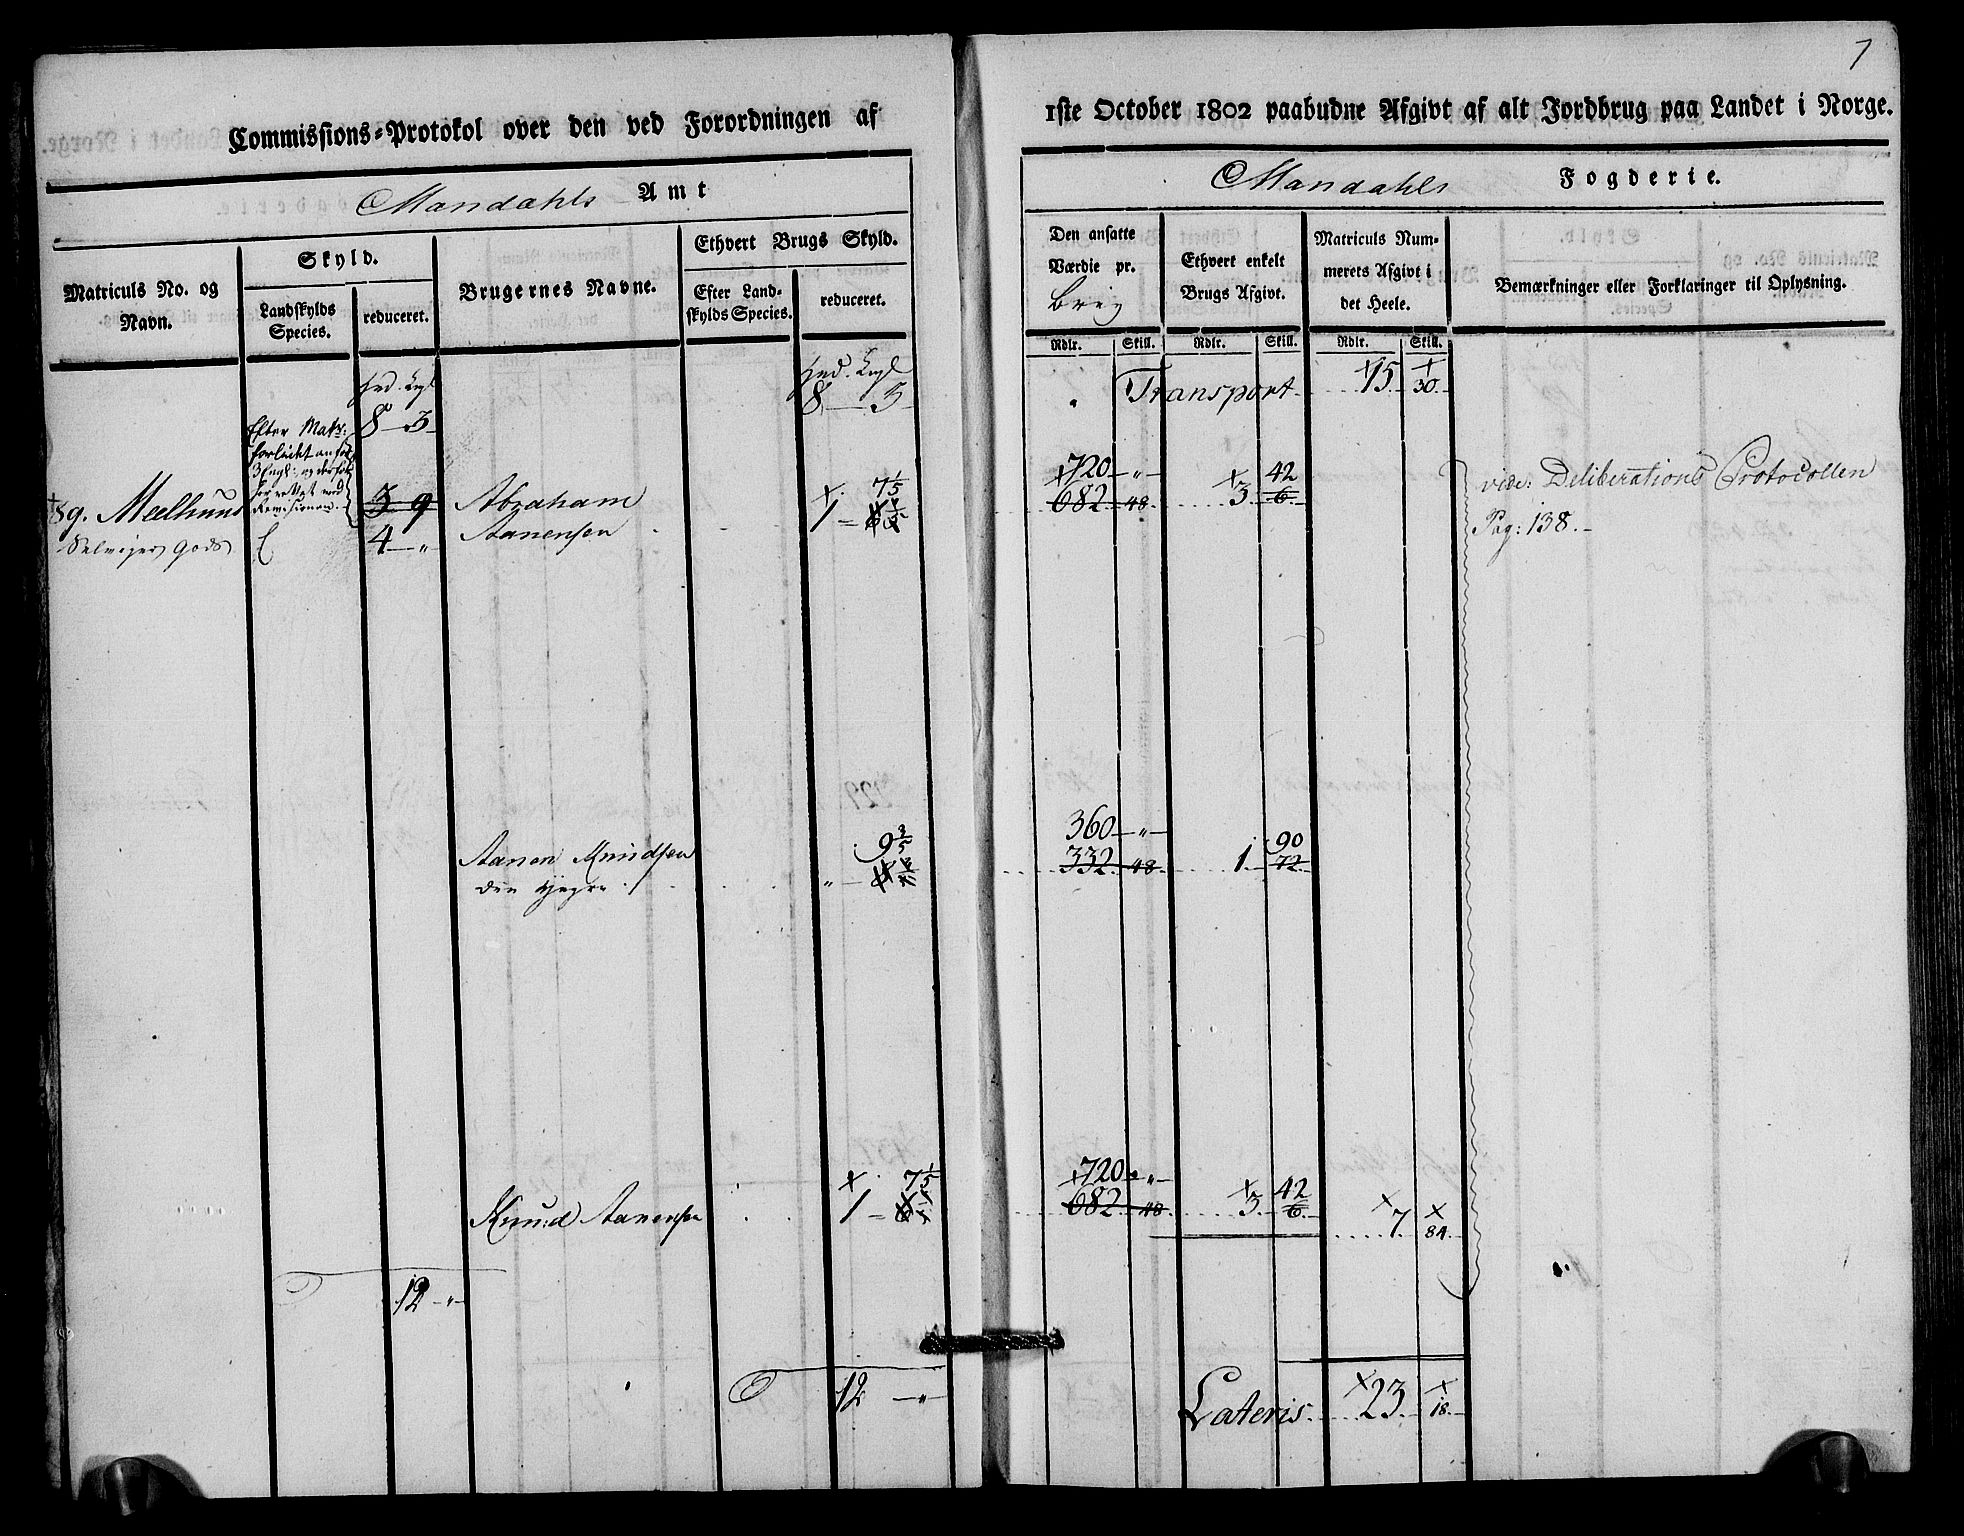 7
Commissions-Protokol over den ved Forordningen af
1ste October 1802 paabudne Afgivt af alt Jordbrug paa Landet i Norge.
Mandahls Amt
Mandahls Fogderie.
Matriculs No. og Navn.
Skyld.
Landskylds Species.
reduceret.
Brugernes Navne.
Ethvert Brugs Skyld.
Efter Landskylds Species.
reduceret.
Den ansatte Værdie pr. brug
Ethvert enkelt Brugs Afgivt.
Matriculs Nummerets Afgivt i det Heele.
Bemærkninger eller Forklaringer til Oplysning.
Rdlr. Skill. Rdlr. Skill. Rdlr. Skill.
8 3
8 3
Transport 15 30
Efter Matr:
89. Meelhuus
3 9
4 "
Abraham
Aanensen
1 7 1/5
720 "
682 48
3 42
6
vide: Deliberations Protocollen
Pag: 138.
Aanen Knudsen
" 9 3/5
360 "
332 48
1 90
72
Knud Aanensen
1 7 1/5
720 "
682 48
3 42
6
7 84
12 "
12 "
Lateris 23 18